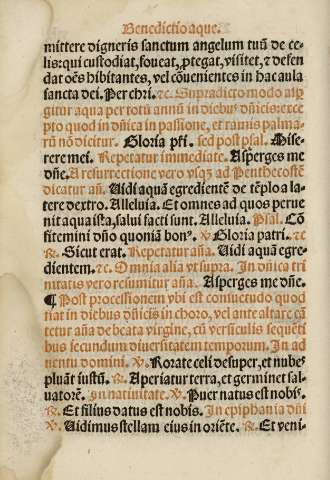 Benedictio aque.
mittere digneris sanctum angelum tuū de ce-
lis: qui custodiat, foueat, ꝓtegat, visitet, ⁊ defen
dat oēs hibitantes, vel cōuenientes in hac aula
sancta dei. Per chri. ⁊c. Supradicto modo asp̄
gitur aqua per totū annū in diebus dn̄icis: exce
pto quod in dn̄ica in passione, et ramis palma-
rū nō dicitur. Gloria pr̄i. sed post psal. Mise-
rere mei. Repetatur immediate. Asperges me
dn̄e. A resurrectione vero vsqꝫ ad Penthecostē
dicatur an̄a. Uidi aquā egredientē de tēplo a la-
tere dextro. Alleluia. Et omnes ad quos perue
nit aqua ista, salui facti sunt. Alleluia. Psal. Cō
fitemini dn̄o quoniā bonꝰ. ℣ Gloria patri. ⁊c
℟. Sicut erat. Repetatur an̄a. Uidi aquā egre-
dientem. ⁊c. Omnia alia vt supra. In dn̄ica tri
nitatis vero resumitur an̄a. Asperges me dn̄e.
¶ Post processionem vbi est consuetudo quod
fiat in diebus dn̄icis in choro, vel ante altare cā
tetur an̄a de beata virgine, cū versiculis sequēti
bus secundum diuersitatem temporum. In ad
uentu domini. ℣. Rorate celi desuper, et nubes
pluāt iustū. ℟. Aperiatur terra, et germinet sal-
uatorē. In natiuitate. ℣. Puer natus est nobis.
℟. Et filius datus est nobis. In epiphania dn̄i
℣. Uidimus stellam eius in oriēte. ℟. Et veni-